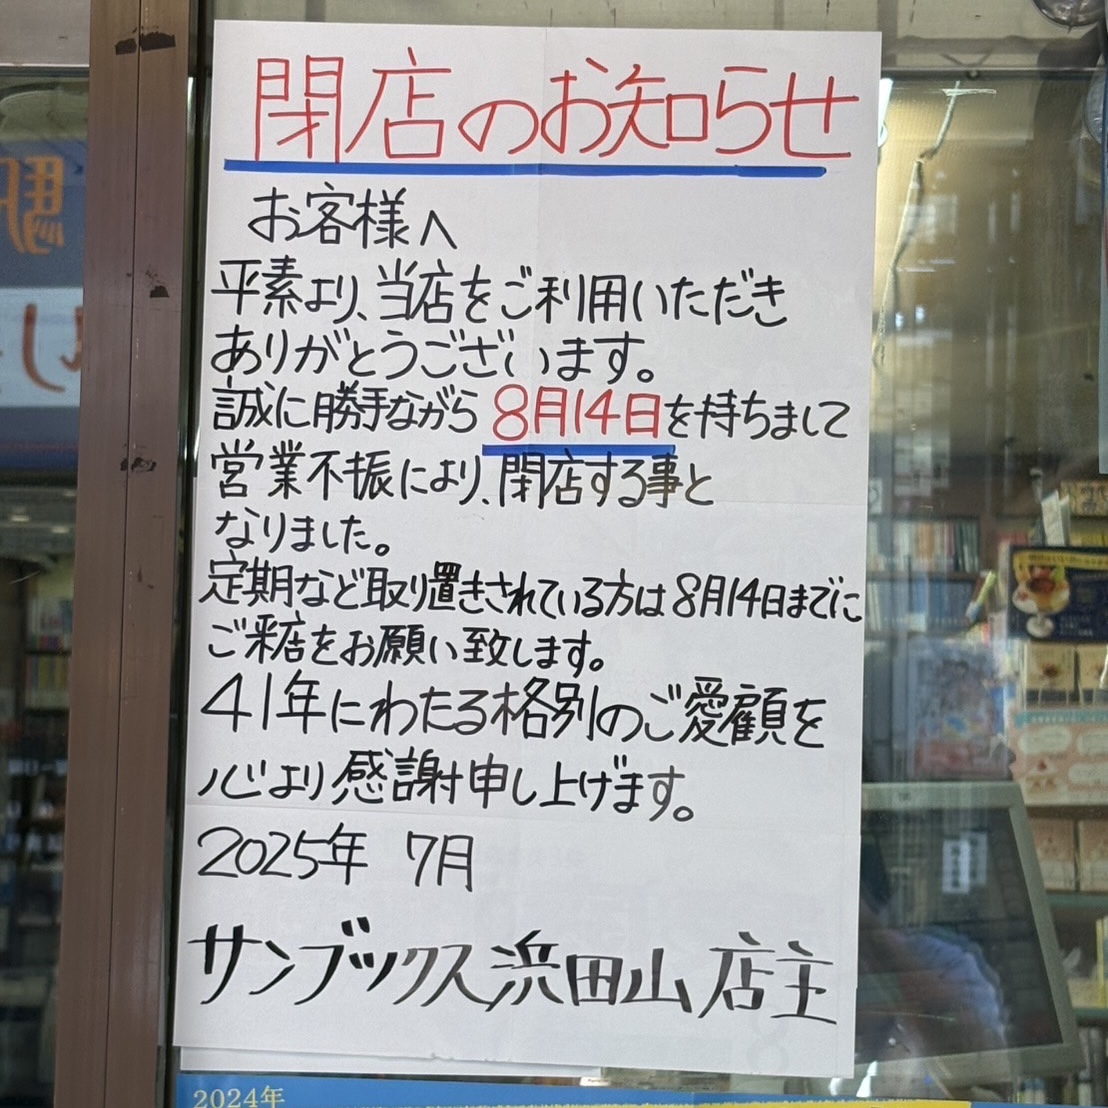 閉店のお知らせ
お客様へ
平素より、当店をご利用いただき
ありがとうございます。
誠に勝手ながら8月14日を持ちまして
営業不振により、閉店する事と
なりました。
定期など取り置きされている方は8月14日までに
ご来店をお願い致します。
41年にわたる格別のご愛顧を
心より感謝申し上げます。
2025年 7月
サンブックス浜田山 店主
2024年